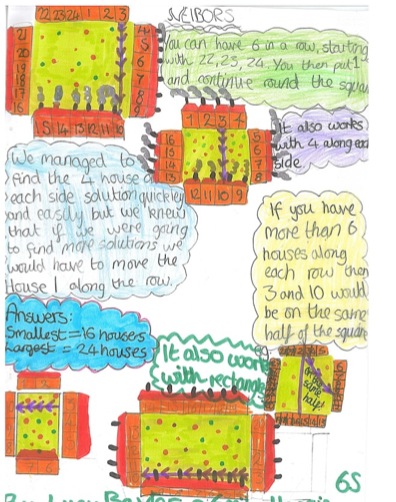 NEIBORS
You can have 6 in a row, starting
with 22, 23, 24. You then put 1
and continue round the squar
22 23 24 1 2 3
21
20
19
18
17
16
4
5
6
7
8
15 14 13 12 11 10
It also works
with 4 along each
side.
1 2 3 4
16
15
14
13
5
6
7
8
12 11 10 9
We managed to
find the 4 house
each side solution quickley
and easily but we knew
that if we were going
to find more solutions we
would have to move the
House 1 along the row.
If you have
more than 6
houses along
each row then
3 and 10 would
be on the same
half of the square
Answers:
Smallest = 16 houses
Largest = 24 houses
It also work
with rectangle
same
half!
6S